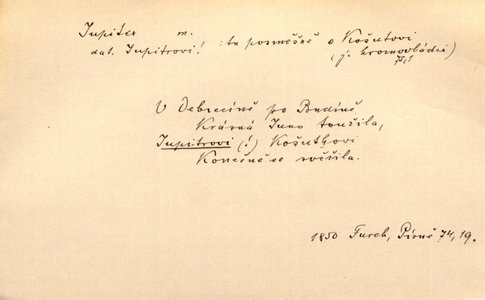 Jupiter m.
dat. Jupitrovi! : tu posměšně o Košutovi
(j. hromovládci)
75,1
V Debrecíně po Budíně
Krásná Juno toužila,
Jupitrovi (!) Košuthovi
Konečně se svěřila.
1850 Turek, Písně 74, 19.